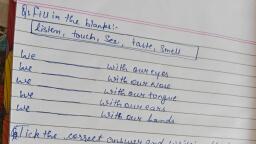 Q1 Fill in the blanks:-
listen, touch, see, taste, smell
we ________ with our eyes
we ________ with our nose
we ________ with our tongue
we ________ with our ears
we ________ with our hands
Tick the correct answer and